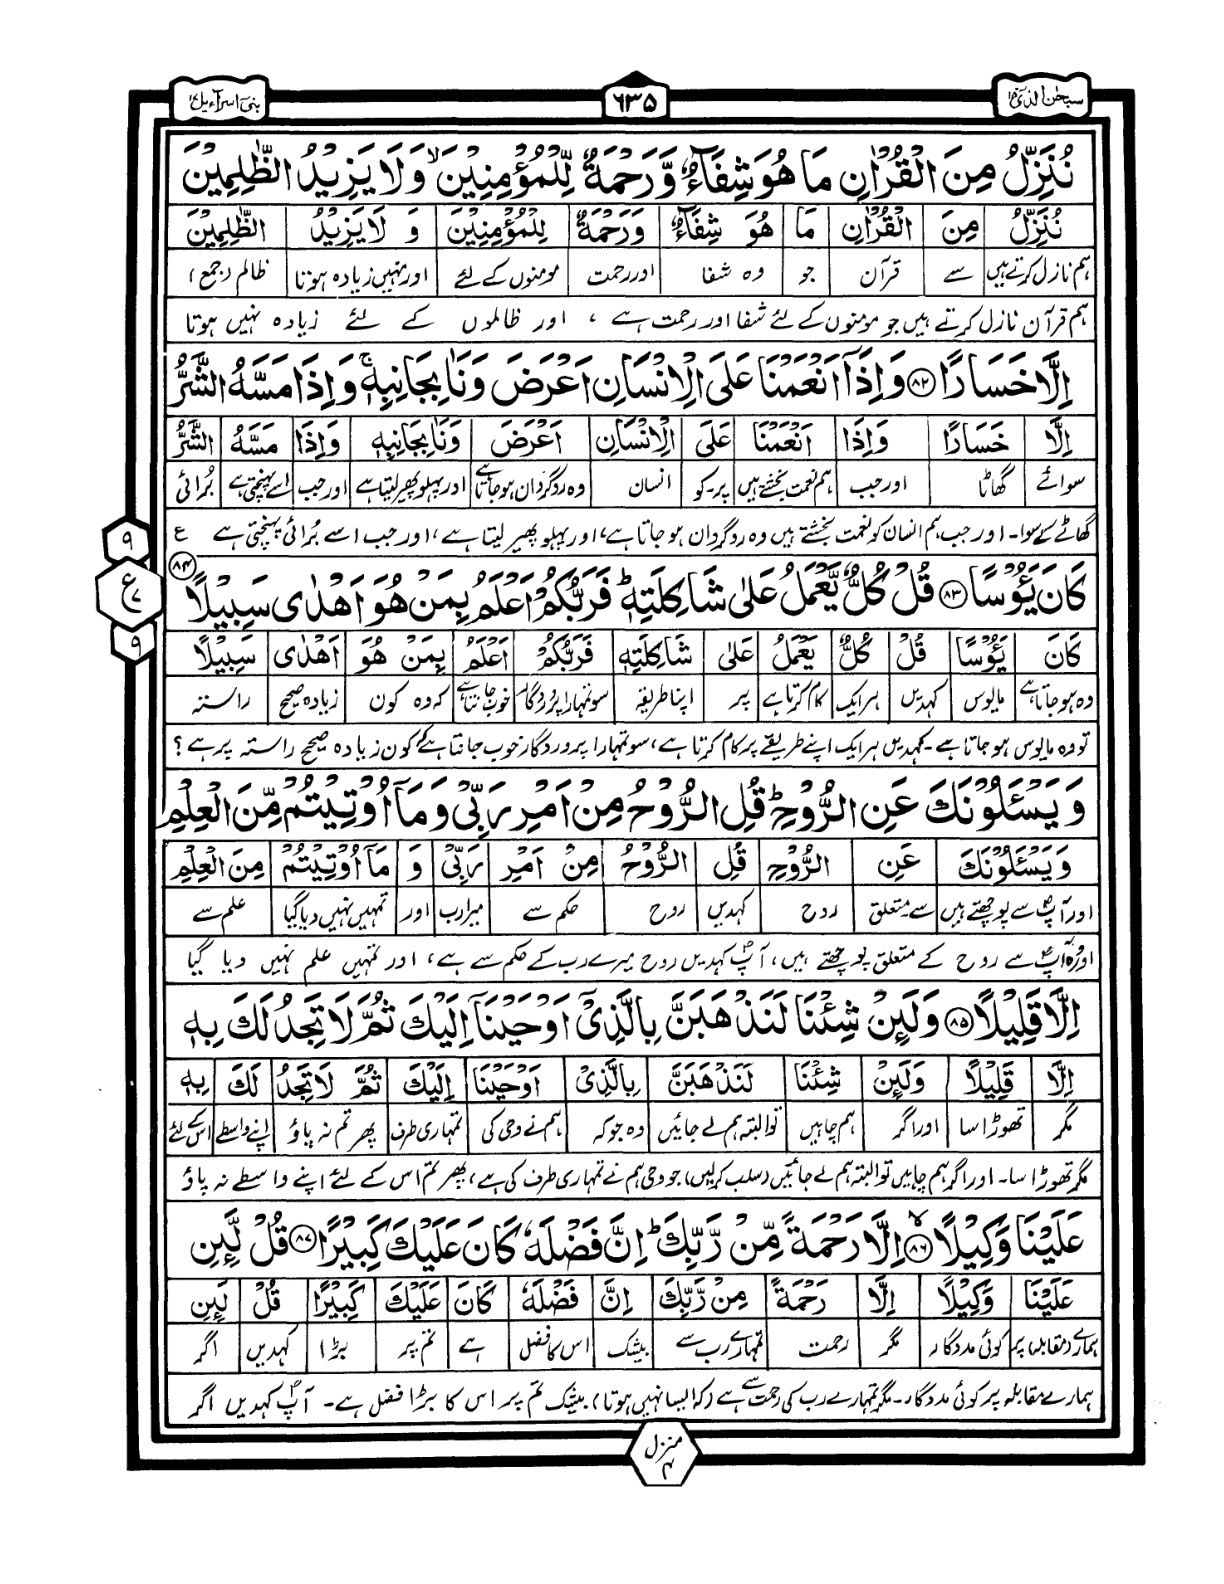 سبحٰن الذی ١٥
٦٣٥
بنی اسرآءیل ١٧
نُنَزِّلُ مِنَ الْقُرْاٰنِ مَا هُوَ شِفَآءٌ وَّرَحْمَةٌ لِّلْمُؤْمِنِيْنَ ۙ وَلَا يَزِيْدُ الظّٰلِمِيْنَ
نُنَزِّلُ مِنَ الْقُرْاٰنِ مَا هُوَ شِفَآءٌ وَرَحْمَةٌ لِلْمُؤْمِنِيْنَ وَ لَا يَزِيْدُ الظّٰلِمِيْنَ
ہم نازل کرتے ہیں سے قرآن جو وہ شفا اور رحمت مومنوں کے لئے اور نہیں زیادہ ہوتا ظالم (جمع)
ہم قرآن نازل کرتے ہیں جو مومنوں کے لئے شفا اور رحمت ہے ، اور ظالموں کے لئے زیادہ نہیں ہوتا
اِلَّا خَسَارًا ۝۸۲ وَاِذَآ اَنْعَمْنَا عَلَى الْاِنْسَانِ اَعْرَضَ وَنَاٰ بِجَانِبِهٖ ۚ وَاِذَا مَسَّهُ الشَّرُّ
اِلَّا خَسَارًا وَاِذَا اَنْعَمْنَا عَلَى الْاِنْسَانِ اَعْرَضَ وَنَاٰ بِجَانِبِهٖ وَاِذَا مَسَّهُ الشَّرُّ
سوائے گھاٹا اور جب ہم نعمت بخشتے ہیں پر۔کو انسان وہ روگردان ہو جاتا ہے اور پہلو پھیر لیتا ہے اور جب اسے پہنچتی ہے برائی
گھاٹے کے سوا۔ اور جب ہم انسان کو نعمت بخشتے ہیں وہ روگردان ہو جاتا ہے، اور پہلو پھیر لیتا ہے، اور جب اسے برائی پہنچتی ہے
ع
٩
ع
٧
٩
كَانَ يَئُوْسًا ۝۸۳ قُلْ كُلٌّ يَّعْمَلُ عَلٰى شَاكِلَتِهٖ ؕ فَرَبُّكُمْ اَعْلَمُ بِمَنْ هُوَ اَهْدٰى سَبِيْلًا ۝۸۴
كَانَ يَئُوْسًا قُلْ كُلٌّ يَعْمَلُ عَلٰى شَاكِلَتِهٖ فَرَبُّكُمْ اَعْلَمُ بِمَنْ هُوَ اَهْدٰى سَبِيْلًا
وہ ہو جاتا ہے مایوس کہدیں ہر ایک کام کرتا ہے پر اپنا طریقہ سو تمہارا پروردگار خوب جانتا ہے کہ وہ کون زیادہ صحیح راستہ
تو وہ مایوس ہو جاتا ہے۔ کہدیں ہر ایک اپنے طریقے پر کام کرتا ہے، سو تمہارا پروردگار خوب جانتا ہے کہ کون زیادہ صحیح راستہ پر ہے؟
وَيَسْـَٔلُوْنَكَ عَنِ الرُّوْحِ ؕ قُلِ الرُّوْحُ مِنْ اَمْرِ رَبِّىْ وَمَآ اُوْتِيْتُمْ مِّنَ الْعِلْمِ
وَيَسْـَٔلُوْنَكَ عَنِ الرُّوْحِ قُلِ الرُّوْحُ مِنْ اَمْرِ رَبِّىْ وَ مَآ اُوْتِيْتُمْ مِنَ الْعِلْمِ
اور آپؐ سے پوچھتے ہیں سے متعلق روح کہدیں روح حکم سے میرا رب اور تمہیں نہیں دیا گیا علم سے
اور وہ آپؐ سے روح کے متعلق پوچھتے ہیں، آپؐ کہدیں روح میرے رب کے حکم سے ہے، اور تمہیں علم نہیں دیا گیا
اِلَّا قَلِيْلًا ۝۸۵ وَلَئِنْ شِئْنَا لَنَذْهَبَنَّ بِالَّذِىْٓ اَوْحَيْنَآ اِلَيْكَ ثُمَّ لَا تَجِدُ لَكَ بِهٖ
اِلَّا قَلِيْلًا وَلَئِنْ شِئْنَا لَنَذْهَبَنَّ بِالَّذِىْ اَوْحَيْنَا اِلَيْكَ ثُمَّ لَا تَجِدُ لَكَ بِهٖ
مگر تھوڑا سا اور اگر ہم چاہیں تو البتہ ہم لے جائیں وہ جو کہ ہم نے وحی کی تمہاری طرف پھر تم نہ پاؤ اپنے واسطے اس کے لئے
مگر تھوڑا سا۔ اور اگر ہم چاہیں تو البتہ ہم لے جائیں (سلب کرلیں) جو وحی ہم نے تمہاری طرف کی ہے، پھر تم اس کے لئے اپنے واسطے نہ پاؤ
عَلَيْنَا وَكِيْلًا ۝۸۶ ۙ اِلَّا رَحْمَةً مِّنْ رَّبِّكَ ؕ اِنَّ فَضْلَهٗ كَانَ عَلَيْكَ كَبِيْرًا ۝۸۷ قُلْ لَّئِنِ
عَلَيْنَا وَكِيْلًا اِلَّا رَحْمَةً مِنْ رَّبِّكَ اِنَّ فَضْلَهٗ كَانَ عَلَيْكَ كَبِيْرًا قُلْ لَئِنِ
ہمارے (مقابلہ) پر کوئی مددگار مگر رحمت تمہارے رب سے بیشک اس کا فضل ہے تم پر بڑا کہدیں اگر
ہمارے مقابلہ پر کوئی مددگار۔ مگر تمہارے رب کی رحمت سے ہے (کہ ایسا نہیں ہوتا) بیشک تم پر اس کا بڑا فضل ہے۔ آپؐ کہدیں اگر
منزل
٤